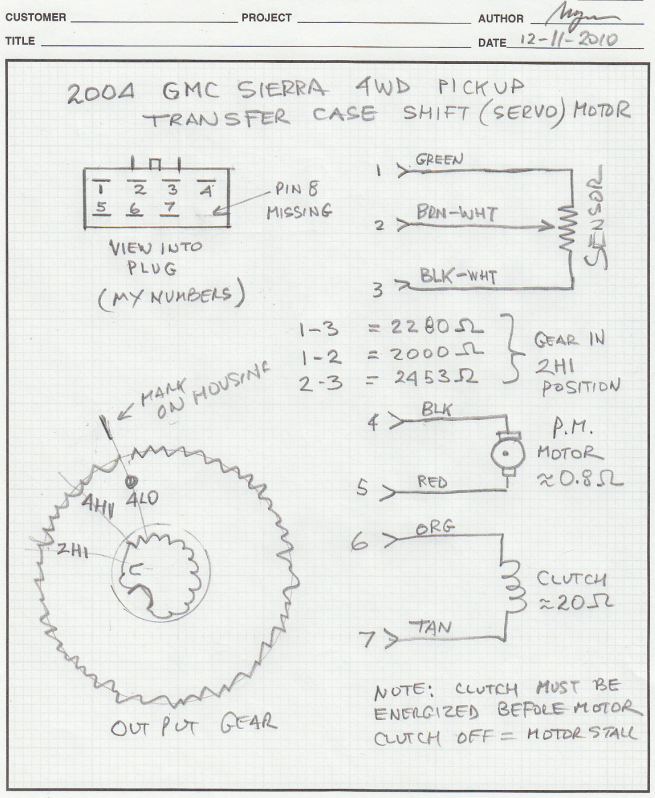 CUSTOMER PROJECT AUTHOR
TITLE DATE 12-11-2010
2004 GMC SIERRA 4WD PICKUP
TRANSFER CASE SHIFT (SERVO) MOTOR
1 2 3 4
5 6 7
PIN 8
MISSING
VIEW INTO
PLUG
(MY NUMBERS)
1 GREEN
2 BRN-WHT
3 BLK-WHT
SENSOR
1-3 = 2280Ω
1-2 = 2000Ω
2-3 = 2453Ω
GEAR IN
2HI
POSITION
MARK
ON HOUSING
4HI 4LO
2HI
OUT PUT GEAR
4 BLK
5 RED
P.M.
MOTOR
≈0.8Ω
6 ORG
7 TAN
CLUTCH
≈20Ω
NOTE: CLUTCH MUST BE
ENERGIZED BEFORE MOTOR
CLUTCH OFF = MOTOR STALL